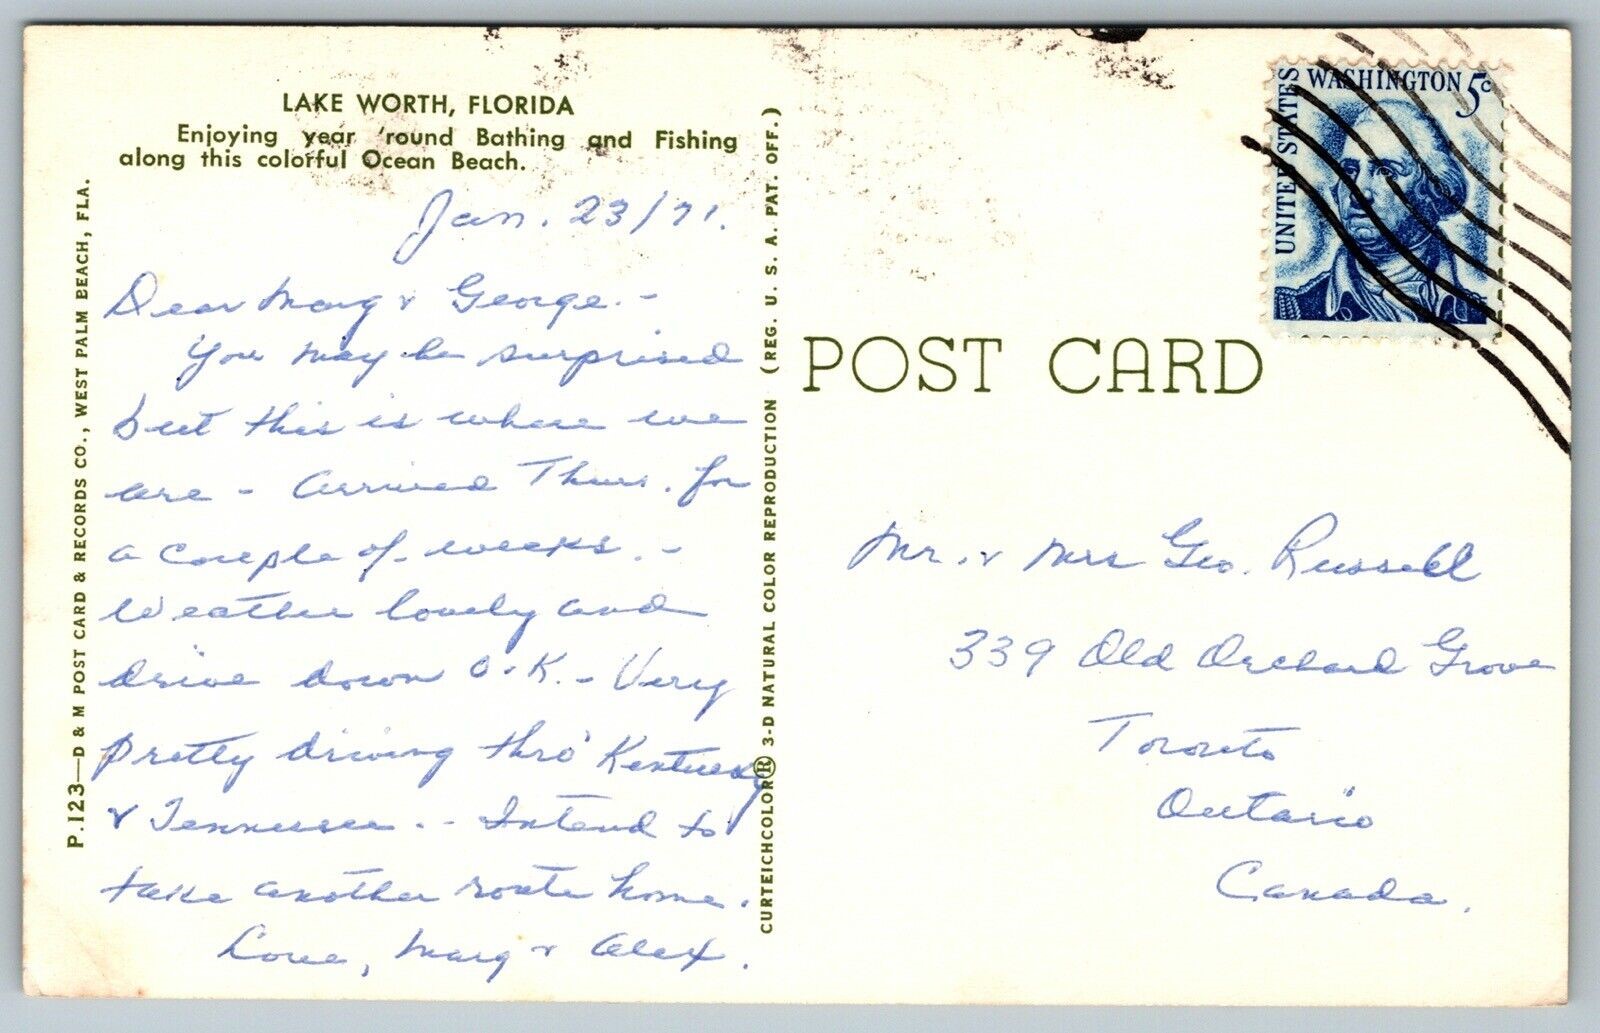 LAKE WORTH, FLORIDA
Enjoying year 'round Bathing and Fishing
along this colorful Ocean Beach.
Jan. 23/71.
Dear Marg & George. -
You may be surprised
but this is where we
are - arrived Thurs. for
a couple of weeks. -
Weather lovely and
drive down O.K. - Very
pretty driving thro' Kentucky
& Tennessee. - Intend to
take another route home.
Love, Marg & Alex.
P.123—D & M POST CARD & RECORDS CO., WEST PALM BEACH, FLA.
CURTEICHCOLOR® 3-D NATURAL COLOR REPRODUCTION (REG. U. S. A. PAT. OFF.)
POST CARD
UNITED STATES
WASHINGTON 5c
Mr. & Mrs Geo. Russell
339 Old Orchard Grove
Toronto
Ontario
Canada.